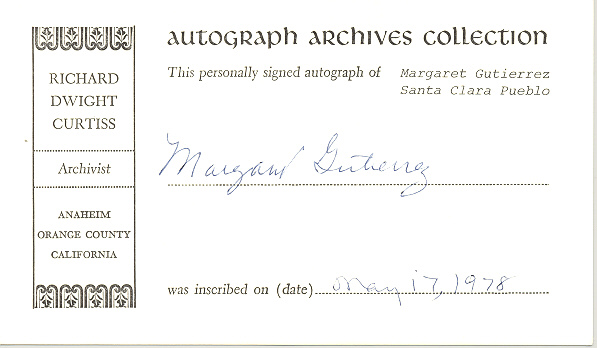 RICHARD
DWIGHT
CURTISS
Archivist
ANAHEIM
ORANGE COUNTY
CALIFORNIA
AUTOGRAPH ARCHIVES COLLECTION
This personally signed autograph of Margaret Gutierrez
Santa Clara Pueblo
Margaret Gutierrez
was inscribed on (date) May 17, 1978